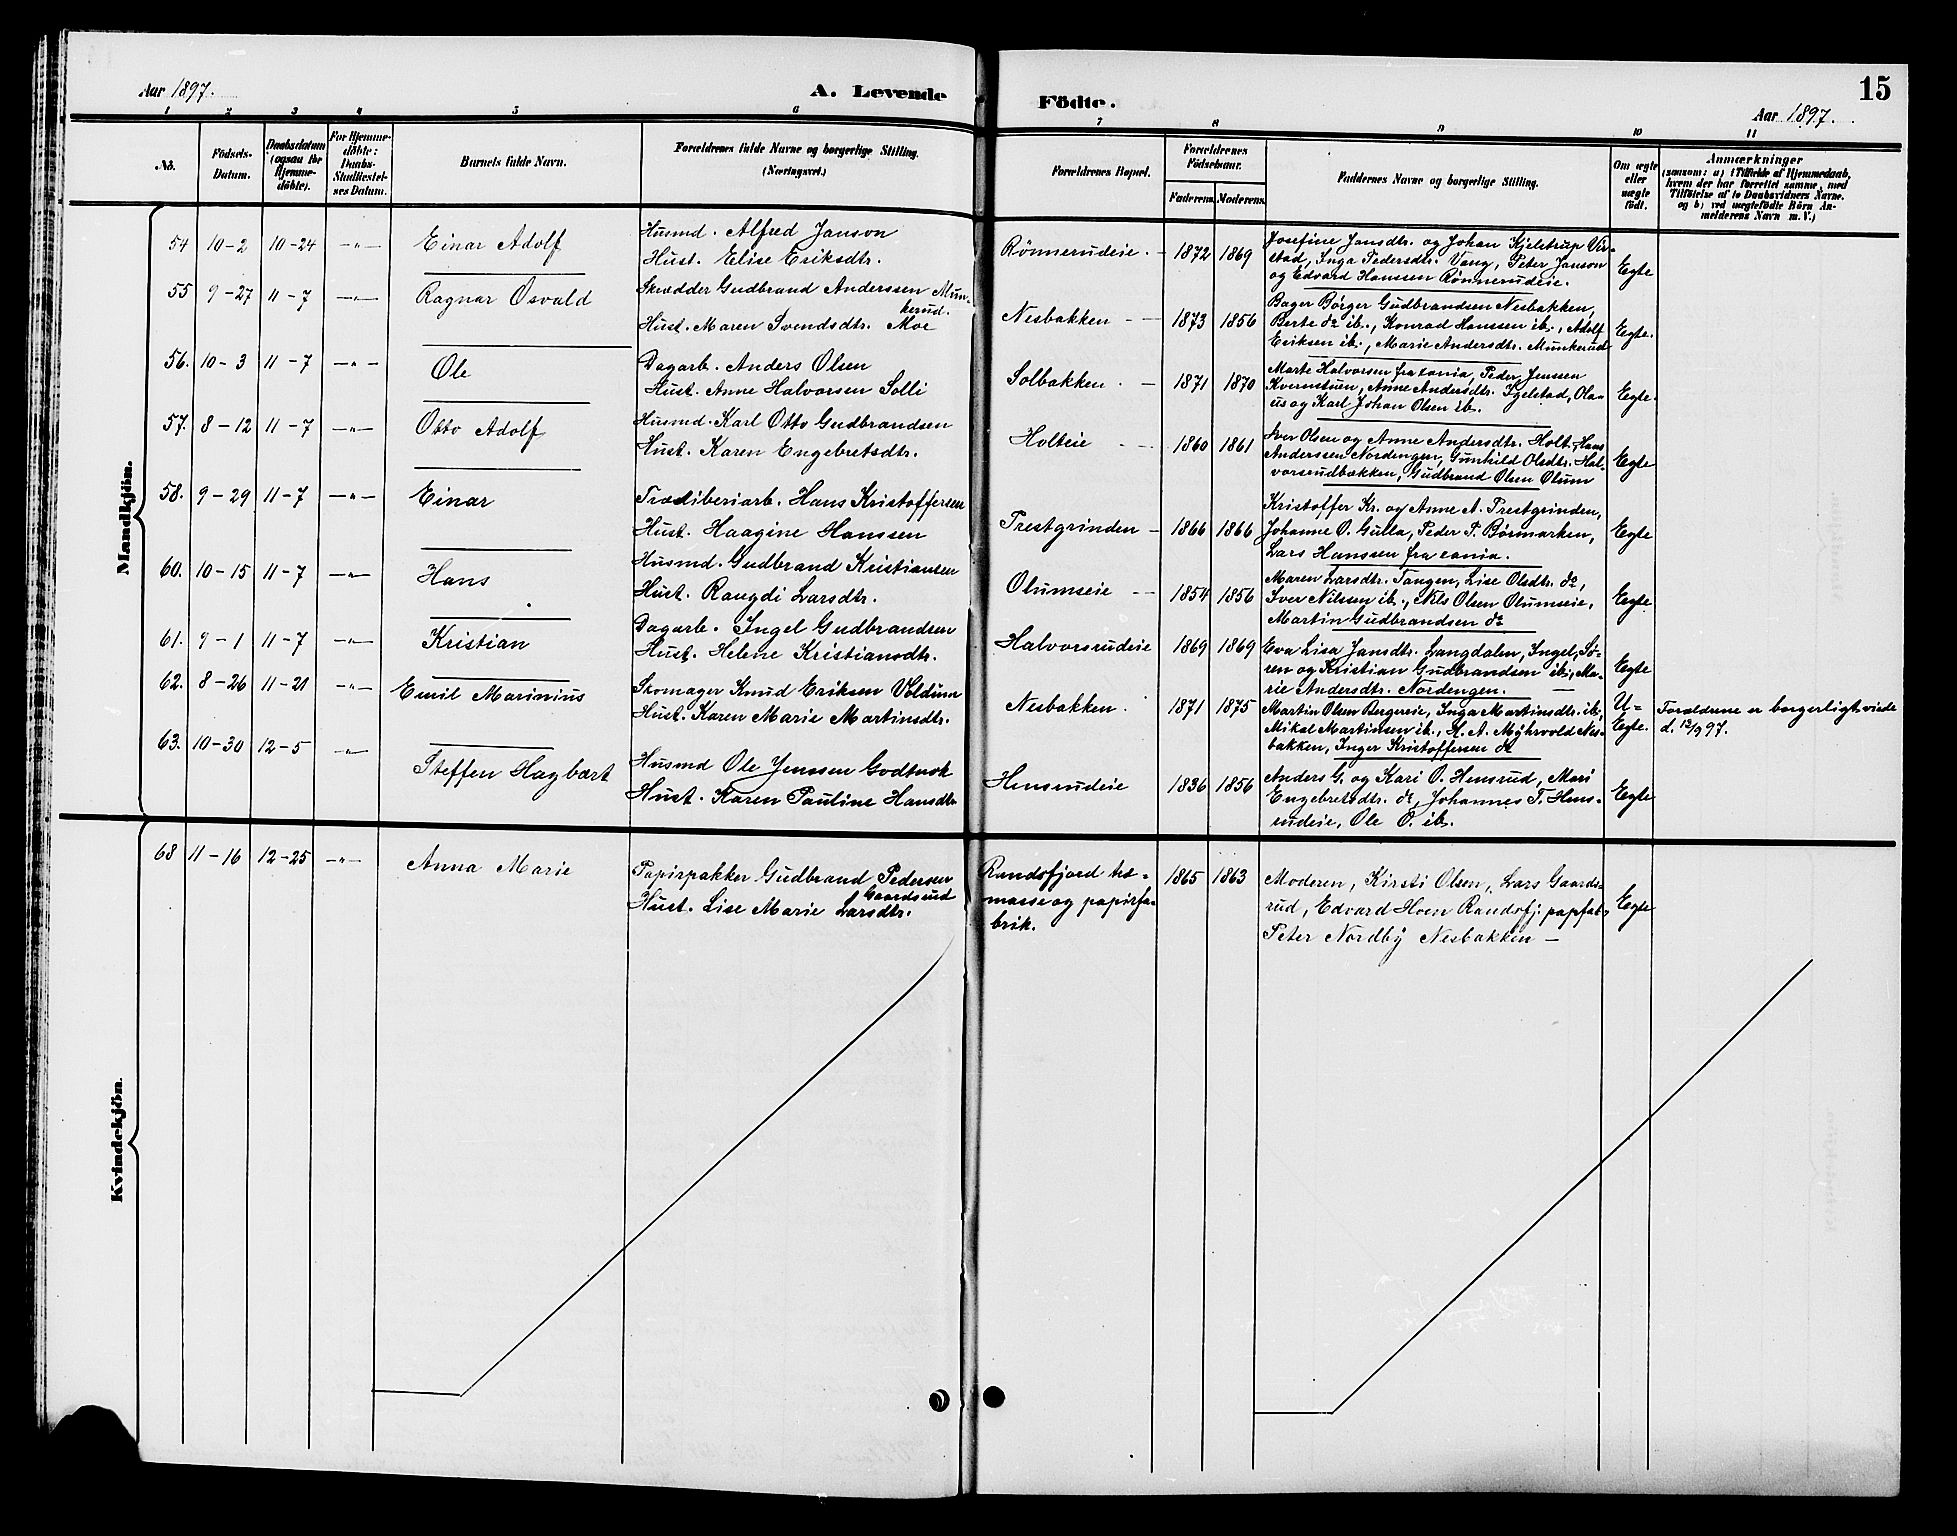 Aar 1897.
A. Levende
Födte.
15
Aar 1897.
1 2 3 4 5 6 7 8 9 10 11
No.
Födsels-
Datum.
Daabsdatum
(ogsaa for
Hjemme-
döbte).
For Hjemme-
döbte:
Daabs-
Stadfæstel-
ses Datum.
Barnets fulde Navn.
Forældrenes fulde Navne og borgerlige Stilling.
(Næringsvei.)
Forældrenes Bopæl.
Forældrenes
Födselsaar.
Faderens. Moderens.
Faddernes Navne og borgerlige Stilling.
Om ægte
eller
uægte
födt.
Anmærkninger
(saasom: a) i Tilfælde af Hjemmedaab,
hvem der har forrettet samme, med
Tilföielse af to Daabsvidners Navne.
og b) ved uægtefödte Börn An-
melderens Navn m. V.)
Mandkjön.
54 10-2 10-24 -"- Einar Adolf
Husmd. Alfred Janson
Hust. Elise Eriksdtr.
Rønnerudeie. - 1872 1869
Josefine Jansdtr. og Johan Kjelstrup Vir-
stad, Inga Pedersdtr. Vang, Peter Janson
og Edvard Hanssen Rønnerudeie.
Egte
55 9-27 11-7 -"- Ragnar Osvald
Skrædder Gudbrand Anderssen Mun-
kerud.
Hust. Maren Svendsdtr. Moe
Nesbakken - - 1873 1856
Bager Børger Gudbrandsen Nesbakken,
Berte do ib., Konrad Hanssen ib., Adolf
Eriksen ib., Marie Andersdtr. Munkerud
Egte.
56. 10-3 11-7 -"- Ole
Dagarb. Anders Olsen
Hust. Anne Halvorsen Solli
Solbakken. - 1871 1870
Marte Halvorsen fra xania, Peder Jenssen
Kverntuen, Anne Andersdtr. Igelstad, Ola-
us og Karl Johan Olsen ib.
Egte.
57. 8-12 11-7 -"- Otto Adolf
Husmd. Karl Otto Gudbrandsen
Hust. Karen Engebretsdtr.
Holteie - - 1860 1861
Iver Olsen og Anne Andersdtr. Holt, Hans
Anderssen Nordengen, Gunhild Olsdtr. Hal-
vorsrudbakken, Gudbrand Olsen Olum
Egte
58. 9-29 11-7 -"- Einar
Træsliberiarb. Hans Kristoffersen
Hust. Haagine Hanssen
Prestgrinden - 1866 1866
Kristoffer Kr. og Anne A. Prestgrinden,
Johanne O. Gulla, Peder P. Børmarken,
Lars Hanssen fra xania.
Egte
60. 10-15 11-7 -"- Hans
Husmd. Gudbrand Kristiansen
Hust. Rangdi Larsdtr.
Olumseie - - 1854 1856
Maren Larsdtr. Tangen, Lise Olsdtr. do,
Iver Nilssen ib., Nils Olsen Olumseie,
Martin Gudbrandsen do
Egte
61. 9-1 11-7 -"- Kristian
Dagarb. Ingel Gudbrandsen
Hust. Helene Kristiansdtr.
Halvorsrudeie 1869 1869
Eva Lisa Jansdtr. Langdalen, Ingel, Sø-
ren og Kristian Gudbrandsen ib., Ma-
rie Andersdtr. Nordengen. -
Egte
62. 8-26 11-21 -"- Emil Marinius
Skomager Knud Eriksen Veldum
Hust. Karen Marie Martinsdtr.
Nesbakken. 1871 1875
Martin Olsen Bergereie, Inga Martinsdtr. ib.,
Mikal Martinsen ib., H. A. Myhrvold Nes-
bakken, Inger Kristoffersen do
U-
Egte.
Forældrene er borgerligt viede
d. 12/9 97.
63. 10-30 12-5 -"- Steffen Hagbart
Husmd Ole Jenssen
Hust. Karen Pauline Hansdtr
Hensrudeie 1836 1856
Anders G. og Kari O. Hensrud, Mari
Engebretsdtr. do, Johannes T. Hens-
rudeie, Ole O. ib.
Egte
Kvindekjön.
68 11-16 12-25 -"- Anna Marie
Papirpakker Gudbrand Pedersen
Gaardsrud
Hust. Lise Marie Larsdtr.
Randsfjord træ-
masse og papirfa-
brik.
1865 1863
Moderen, Kirsti Olsen, Lars Gaards-
rud, Edvard Hoen Randsfj. papfab,
Peter Nordby Nesbakken -
Egte